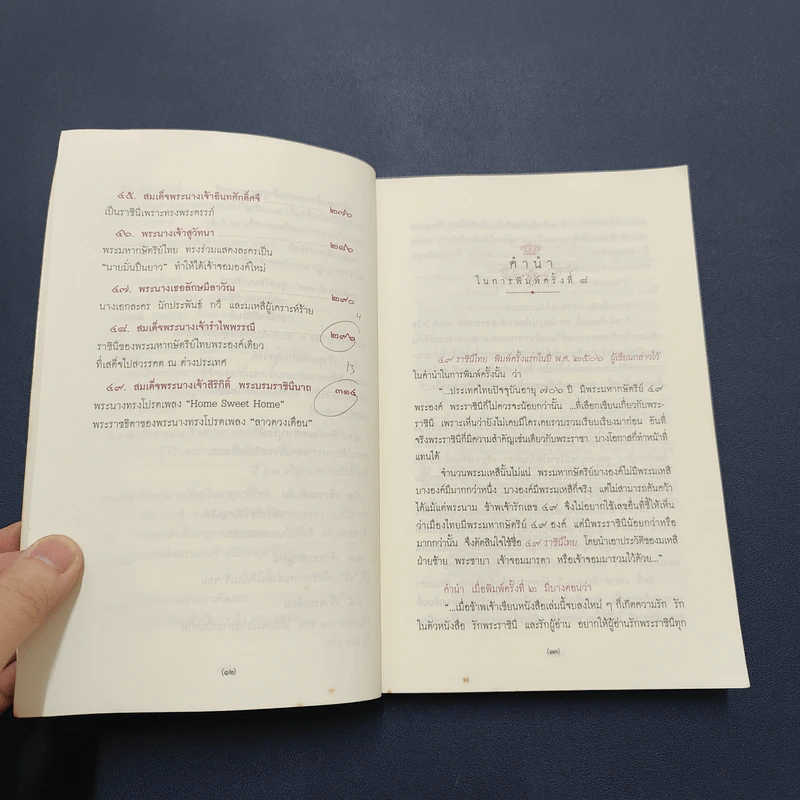 ๔๕. สมเด็จพระนางเจ้าอินทศักดิ์ศจี ๒๗๖
เป็นราชินีเพราะทรงพระครรภ์
๔๖. พระนางเจ้าสุวัทนา ๒๘๖
พระมหากษัตริย์ไทย ทรงร่วมแสดงละครเป็น
“นายมั่นปืนยาว” ทำให้ได้เจ้าจอมองค์ใหม่
๔๗. พระนางเธอลักษมีลาวัณ ๒๙๐
นางเอกละคร นักประพันธ์ กวี และมเหสีผู้เคราะห์ร้าย
๔๘. สมเด็จพระนางเจ้ารำไพพรรณี ๒๙๖
ราชินีของพระมหากษัตริย์ไทยพระองค์เดียว
ที่เสด็จไปสวรรคต ณ ต่างประเทศ
13
๔๙. สมเด็จพระนางเจ้าสิริกิติ์ พระบรมราชินีนาถ ๓๑๔
พระนางทรงโปรดเพลง “Home Sweet Home”
พระราชธิดาของพระนางทรงโปรดเพลง “ลาวดวงเดือน”
(๑๒)
คำนำ
ในการพิมพ์ครั้งที่ ๘
๔๙ ราชินีไทย พิมพ์ครั้งแรกในปี พ.ศ. ๒๕๐๖ ผู้เขียนกล่าวไว้
ในคำนำในการพิมพ์ครั้งนั้น ว่า
“...ประเทศไทยปัจจุบันอายุ ๗๐๖ ปี มีพระมหากษัตริย์ ๔๙
พระองค์ พระราชินีก็ไม่ควรจะน้อยกว่านั้น ...ที่เลือกเขียนเกี่ยวกับพระ-
ราชินี เพราะเห็นว่ายังไม่เคยมีใครเคยรวบรวมเรียบเรียงมาก่อน อันที่
จริงพระราชินีก็มีความสำคัญเช่นเดียวกับพระราชา บางโอกาสก็ทำหน้าที่
แทนได้
จำนวนพระมเหสีนั้นไม่แน่ พระมหากษัตริย์บางองค์ไม่มีพระมเหสี
บางองค์มีมากกว่าหนึ่ง บางองค์มีพระมเหสีก็จริง แต่ไม่สามารถค้นคว้า
ได้แม้แต่พระนาม ข้าพเจ้ารักเลข ๔๙ จึงไม่อยากใช้เลขอื่นที่ชี้ให้เห็น
ว่าเมืองไทยมีพระมหากษัตริย์ ๔๙ องค์ แต่มีพระราชินีน้อยกว่าหรือ
มากกว่านั้น จึงตัดสินใจใช้ชื่อ ๔๙ ราชินีไทย โดยนำเอาประวัติของมเหสี
ฝ่ายซ้าย พระชายา เจ้าจอมมารดา หรือเจ้าจอมมารวมไว้ด้วย...”
คำนำ เมื่อพิมพ์ครั้งที่ ๒ มีบางตอนว่า
“...เมื่อข้าพเจ้าเขียนหนังสือเล่มนี้จบลงใหม่ ๆ ก็เกิดความรัก รัก
ในตัวหนังสือ รักพระราชินี และรักผู้อ่าน อยากให้ผู้อ่านรักพระราชินีทุก
(๑๓)